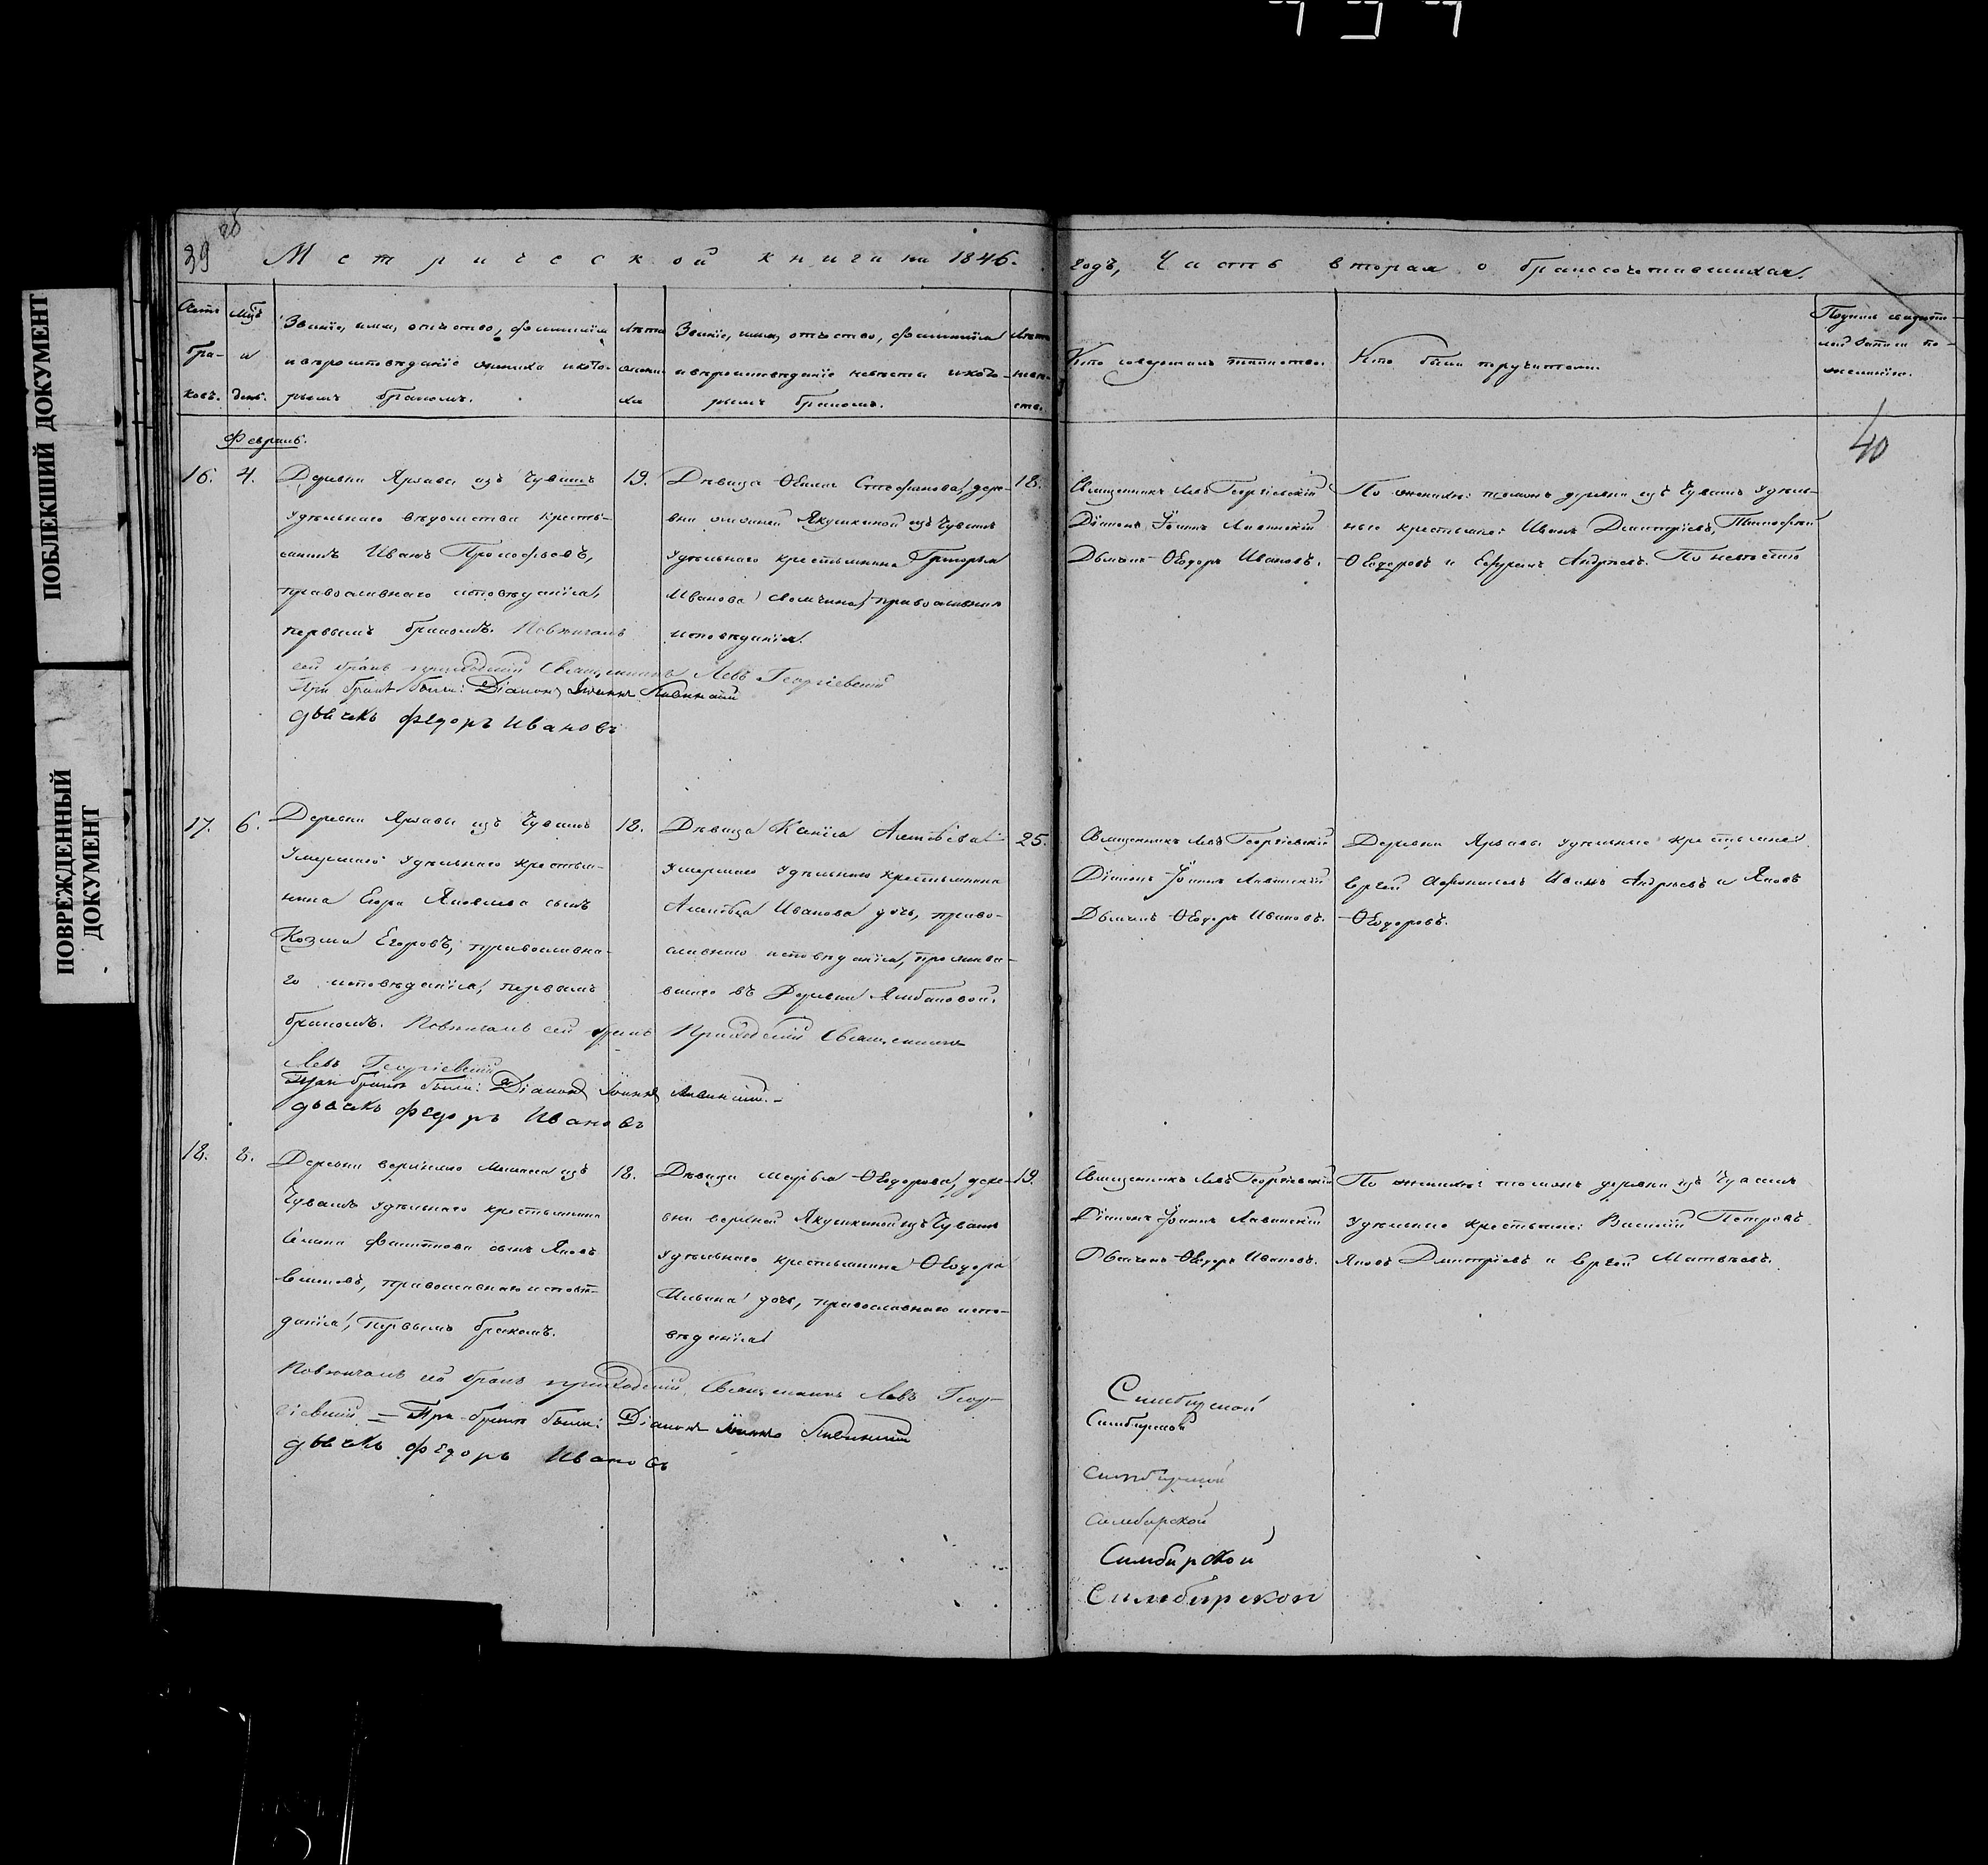 ПОБЛЕКШИЙ ДОКУМЕНТ
ПОВРЕЖДЕННЫЙ
ДОКУМЕНТ
39
Метрической книги на 1846.
годъ, Часть вторая о бракосочетавшихся.
Счетъ
бра-
ковъ.
Мѣс.
и
день.
Званіе, имя, отчество, фамилія
и вѣроисповѣданіе жениха и кото-
рымъ бракомъ.
Лѣта
жени-
ха
Званіе, имя, отчество, фамилія
и вѣроисповѣданіе невѣсты и кото-
рымъ бракомъ.
Лѣта
невѣ-
сты.
Кто совершалъ таинство.
Кто были поручители.
40
Февраль.
16.
4.
Деревни изъ Чувашъ
Удѣльнаго вѣдомства кресть-
янинъ Иванъ Прокофьевъ,
православнаго исповѣданія,
первымъ бракомъ. Повѣнчалъ
сей бракъ приходскій Священникъ Левъ Георгіевскій
При бракѣ были: Діаконъ Іоаннъ
дьячекъ Федоръ Ивановъ
19.
Дѣвица Стефанова дере-
вни Якушкиной изъ Чувашъ
удѣльнаго крестьянина Григорья
Иванова православнаго
исповѣданія.
18.
Священникъ Левъ Георгіевскій
Діаконъ Іоаннъ
Дьячекъ Ѳеодоръ Ивановъ.
По женихѣ: деревни изъ Чувашъ Удѣль-
ные крестьяне: Иванъ Дмитріевъ, Тимофей
Ѳеодоровъ и Ефремъ Андреевъ. По невѣстѣ
17.
6.
Деревни изъ Чувашъ
Умершаго Удѣльнаго крестья-
нина Егора Яковлева сынъ
Козма Егоровъ, православна-
го исповѣданія, первымъ
бракомъ. Повѣнчалъ сей бракъ Приходскій Священникъ
Левъ Георгіевскій
При бракѣ были: Діаконъ Іоаннъ
дьячекъ Федоръ Ивановъ
18.
Дѣвица Ксенія
Умершаго Удѣльнаго крестьянина
Иванова дочь, право-
славнаго исповѣданія,
въ Деревни
25.
Священникъ Левъ Георгіевскій
Діаконъ Іоаннъ
Дьячекъ Ѳеодоръ Ивановъ.
Деревни удѣльные крестьяне
Сергей Иванъ Андреевъ и Яковъ
Ѳеодоровъ.
18.
8.
Деревни изъ
Чувашъ удѣльнаго крестьянина
Семена сынъ Яковъ
Семеновъ, православнаго исповѣ-
данія, первымъ бракомъ.
Повѣнчалъ сей бракъ приходскій Священникъ Левъ Геор-
гіевскій = При бракѣ были: Діаконъ Іоаннъ
дьячекъ Федоръ Ивановъ
18.
Дѣвица Марья Ѳеодорова, дере-
вни верхней Якушкиной изъ Чувашъ
удѣльнаго крестьянина Ѳеодора
Ильина дочь, православнаго испо-
вѣданія
19.
Священникъ Левъ Георгіевскій
Діаконъ Іоаннъ
Дьячекъ Ѳеодоръ Ивановъ.
По женихѣ: деревни изъ Чувашъ
удѣльные крестьяне: Василій Петровъ
Яковъ Дмитріевъ и Сергей Матвеевъ.
Симбирской
Симбирской
Симбирской
Симбирской
Симбирской
Симбирской